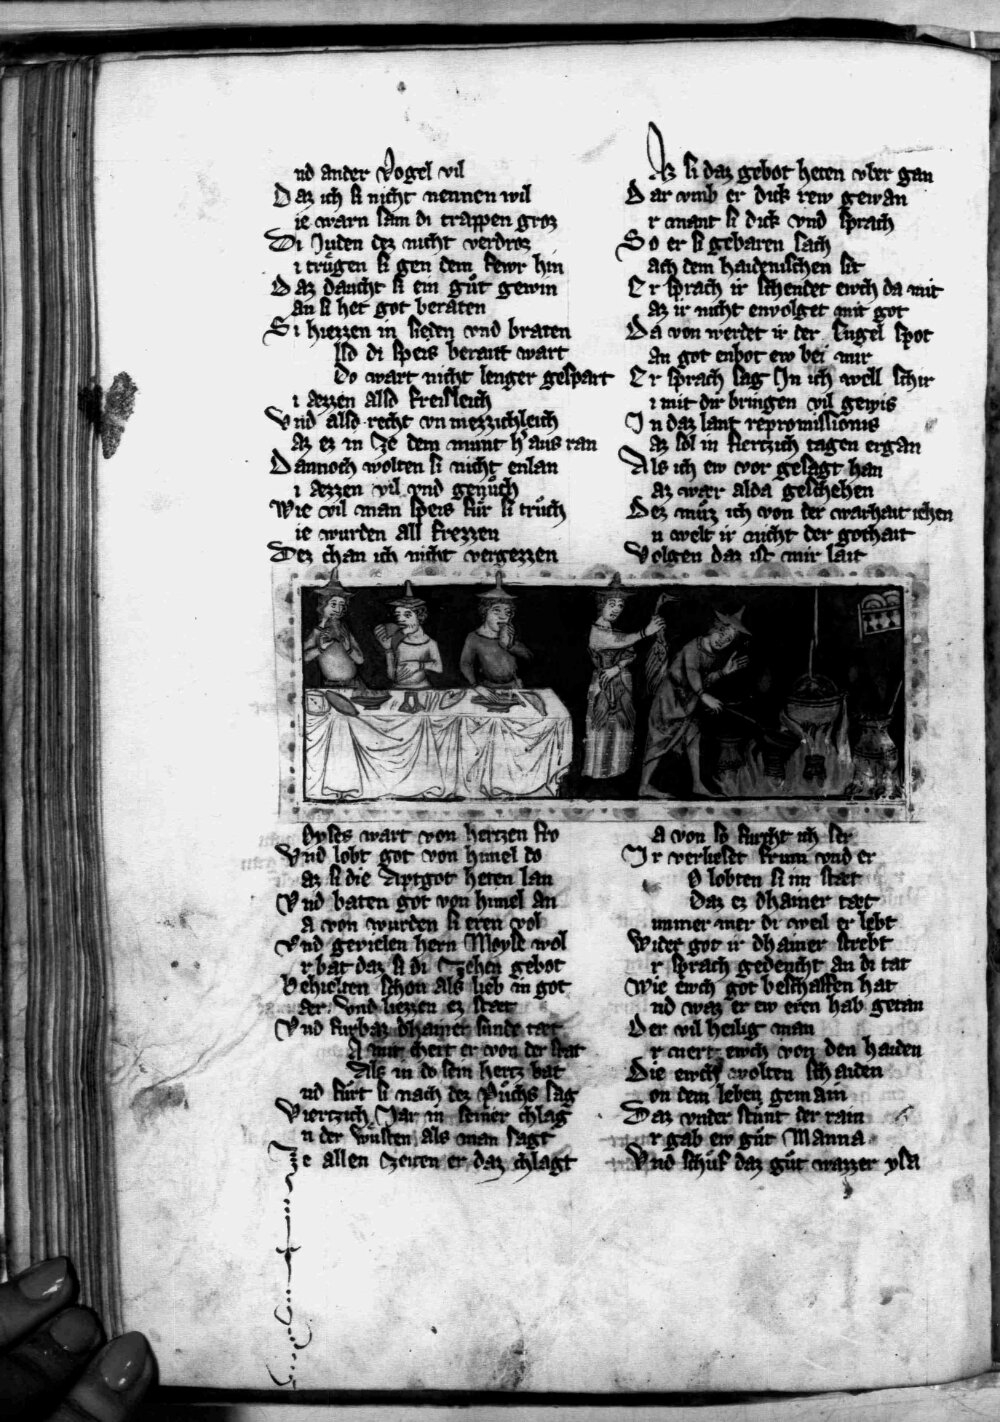 nd ander Vogel vil
Daz ich si nicht nennen wil
ie warn sam di trappen groz
Di Juden dez nicht verdroz
i trůgen si gen dem fewr hin
Daz daucht si ein gůt gewin
an si het got beraten
Si hiezzen in sieden vnd braten
lso di speis berait wart
Do wart nicht lenger gespart
i aezzen also freisleich
Vnd also recht vnmezzichleich
az ez in ze dem munt her aus ran
Dannoch wolten si nicht enlan
i aezzen vil vnd genůch
Wie vil man speis fůr si trůch
ie wurden all frezzen
Dez chan ich nicht vergezzen
oyses wart von hertzen fro
Vnd lobt got von himel do
az si die Aptgot heten lan
Vnd baten got von himel an
a von wurden si eren vol
Vnd gevielen hern Moyse wol
r bat daz si di zehen gebot
Behielten schon als lieb in got
aer vnd liezzen ez staet
Vnd furbaz dhainer sunde taet
A mit chert er von der stat
Als in do sein hertz bat
nd fůrt si nach dez Půchs sag
Viertzich Jar in seiner chlag
n der wůsten als man sagt
Ze allen zeiten er daz chlagt
Az si daz gebot heten vber gan
Dar vmb er dick rew gewan
r mant si dick vnd sprach
So er si gebaren sach
ach dem haidenischen sit
Er sprach ir schendet ewch da mit
az ir nicht envolget mit got
Da von werdet ir der Engel spot
an got enbot ew bei mir
Er sprach sag In ich well schir
i mit dir bringen vil gewis
In daz lant repromissionis
az sol in fiertzich tagen ergan
Als ich ew vor gesagt han
az waer alda geschehen
Dez můz ich von der warhait iehen
n welt ir nicht der gothait
Volgen daz ist mir lait
a von so furcht ich ser
Ir verlieset frum vnd er
O lobten si im staet
Daz ez dhainer taet
immer mer di weil er lebt
Wider got ir dhainer strebt
r sprach gedencht an di tat
Wie ewch got beschaffen hat
nd waz er ew eren hab getan
Der vil heilig man
r nert ewch von den haiden
Die ewch wolten schaiden
on dem leben gemain
Daz vnder stůnt der rain
r gab ew gůt Manna
Vnd schůf daz gůt wazzer ysa